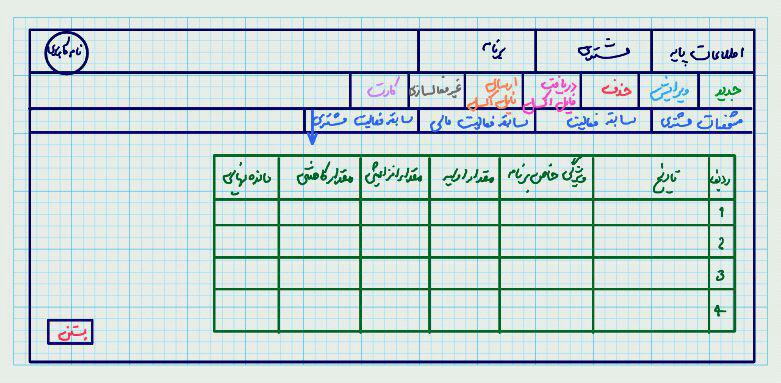 اطلاعات پایه مشتری برنامه نام کاربری
جدید ویرایش حذف دریافت فایل اکسل ارسال فایل اکسل غیرفعالسازی کارت
مشخصات مشتری سابقه فعالیت سابقه فعالیت مالی سابقه فعالیت مشتری
ردیف تاریخ ویژگی خاص برنامه مقدار اولیه مقدار افزایشی مقدار کاهشی مانده نهایی
1
2
3
4
بستن